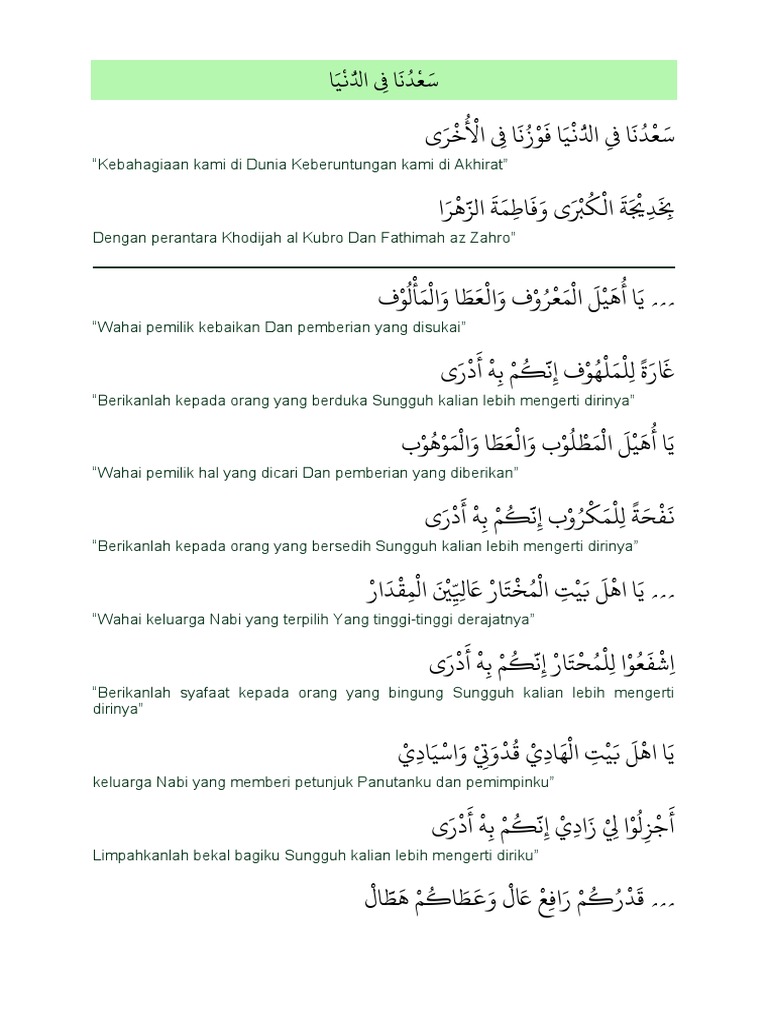 سَعْدُنَا فِى الدُّنْيَا
سَعْدُنَا فيِ الدُّنْيَا فَوْزُنَا فِى الْأُخْرَى
“Kebahagiaan kami di Dunia Keberuntungan kami di Akhirat”
بِخَدِيْجَةَ الْكُبْرَى وَفَاطِمَةَ الزَّهْرَا
Dengan perantara Khodijah al Kubro Dan Fathimah az Zahro”
... يَا أُهَيْلَ الْمَعْرُوْف وَالْعَطَا وَالْمَأْلُوْف
“Wahai pemilik kebaikan Dan pemberian yang disukai”
غَارَةً لِلْمَلْهُوْف إِنَّكُمْ بِهْ أَدْرَى
“Berikanlah kepada orang yang berduka Sungguh kalian lebih mengerti dirinya”
يَا أُهَيْلَ الْمَطْلُوْب وَالْعَطَا وَالْمَوْهُوْب
“Wahai pemilik hal yang dicari Dan pemberian yang diberikan”
نَفْحَةً لِلْمَكْرُوْب إِنَّكُمْ بِهْ أَدْرَى
“Berikanlah kepada orang yang bersedih Sungguh kalian lebih mengerti dirinya”
... يَا اهْلَ بَيْتِ الْمُخْتَارْ عَالِيِّيْنَ الْمِقْدَارْ
“Wahai keluarga Nabi yang terpilih Yang tinggi-tinggi derajatnya”
اِشْفَعُوْا لِلْمُحْتَارْ إِنَّكُمْ بِهْ أَدْرَى
“Berikanlah syafaat kepada orang yang bingung Sungguh kalian lebih mengerti
dirinya”
يَا اهْلَ بَيْتِ الْهَادِيْ قُدْوَتِيْ وَاسْيَادِيْ
keluarga Nabi yang memberi petunjuk Panutanku dan pemimpinku”
أَجْزِلُوْا لِيْ زَادِيْ إِنَّكُمْ بِهْ أَدْرَى
Limpahkanlah bekal bagiku Sungguh kalian lebih mengerti diriku”
... قَدْرُكُمْ رَافِعْ عَالْ وَعَطَاكُمْ هَطَّالْ